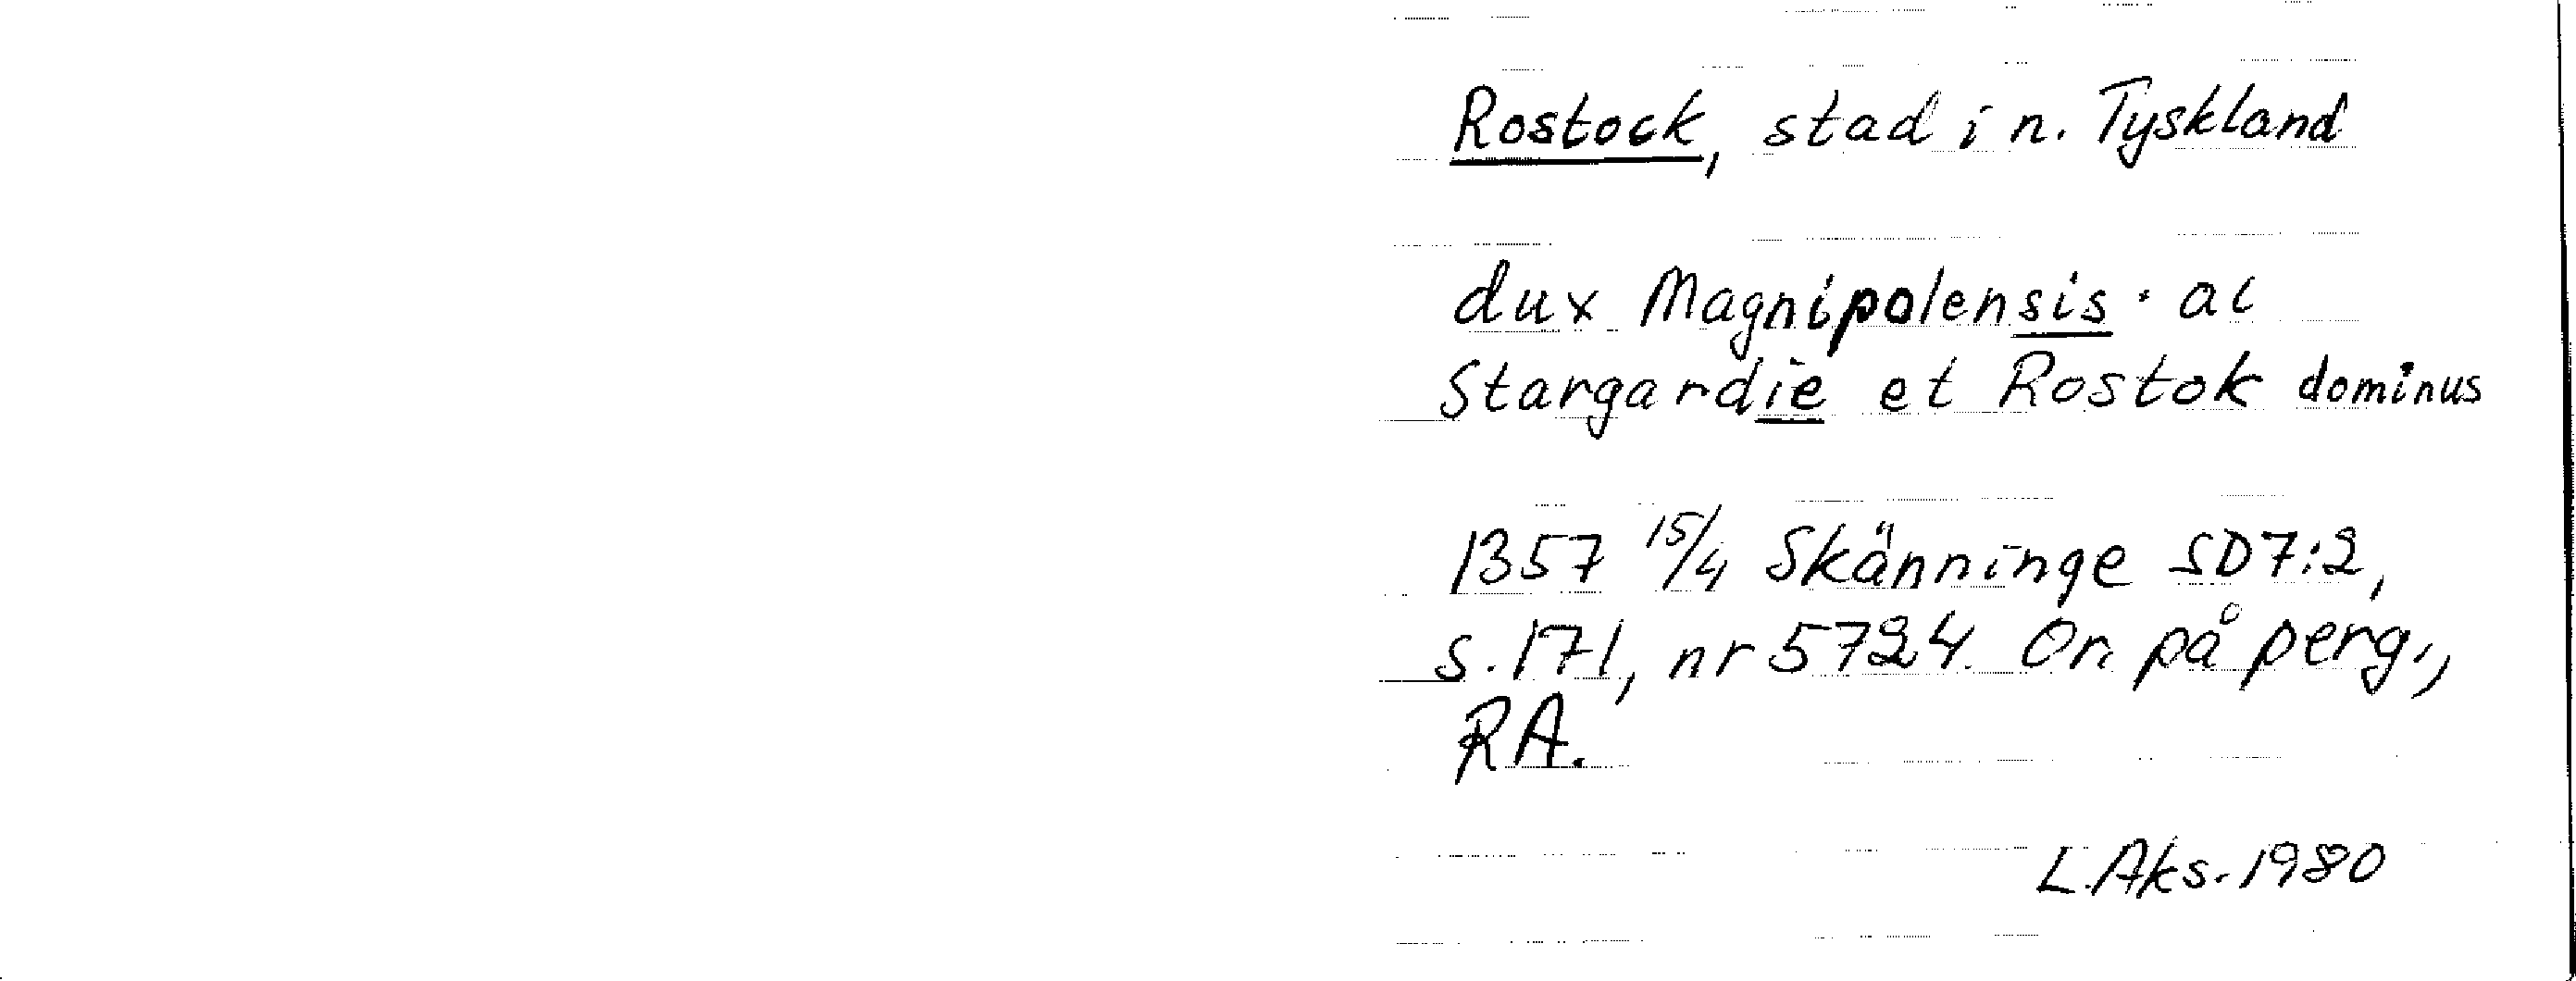 Rostock, stad i n. Tyskland
dux Magnipolensis · ac
Stargardie et Rostok dominus
1357 15/4 Skänninge SD7:2,
s. 171, nr 5724. Or. på perg.,
RA.
L. Aks. 1980